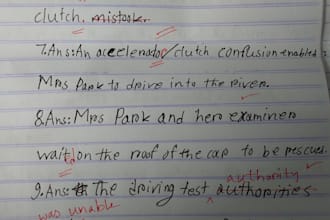 clutch, mistook.
7.Ans:An accelerator/clutch confusion enabled
Mrs Park to drive into the river.
8.Ans:Mrs Park and her examiner
waited on the roof of the car to be rescued.
authority
9.Ans: The driving test authorities
was unable